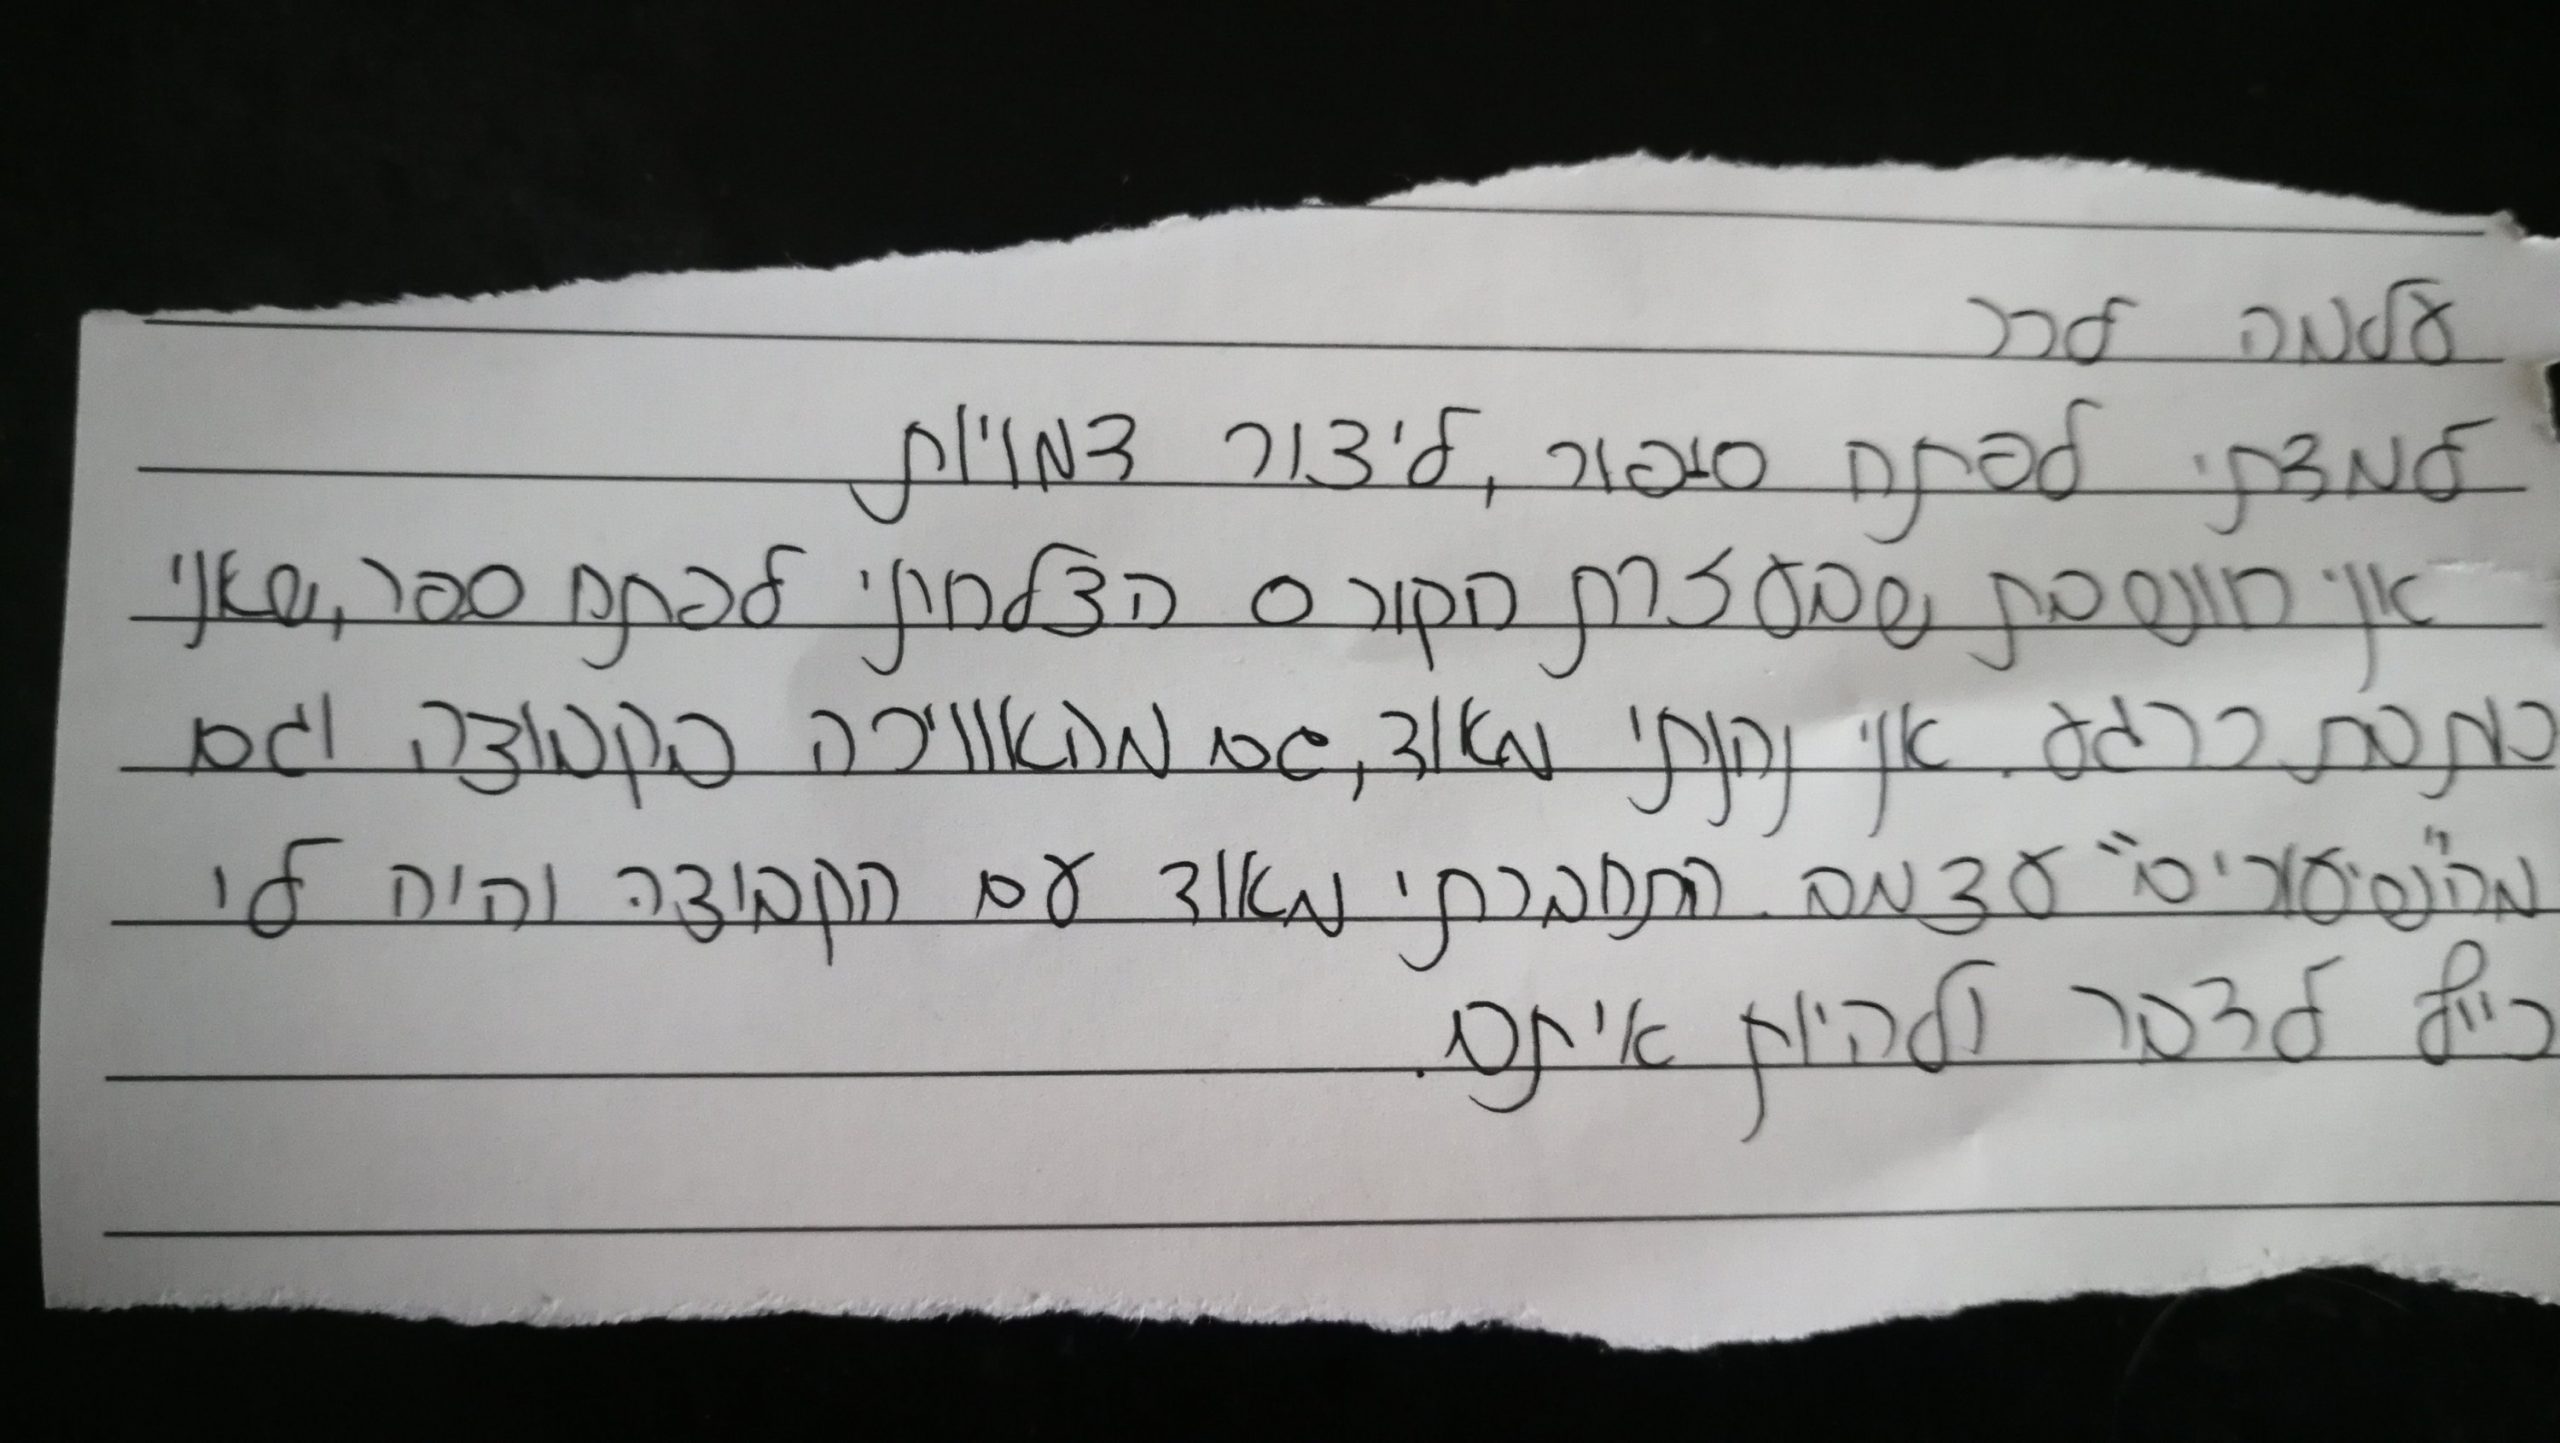 עלמה לרר
למדתי לפתח סיפור, ליצור דמויות
אני חושבת שבעזרת הקורס הצלחתי לפתח ספר, שאני
כותבת כרגע. אני נהנתי מאוד, גם מהאווירה בקבוצה וגם
מה"שיעורים" עצמם. התחברתי מאוד עם הקבוצה והיה לי
כייף לדבר ולהיות איתם.